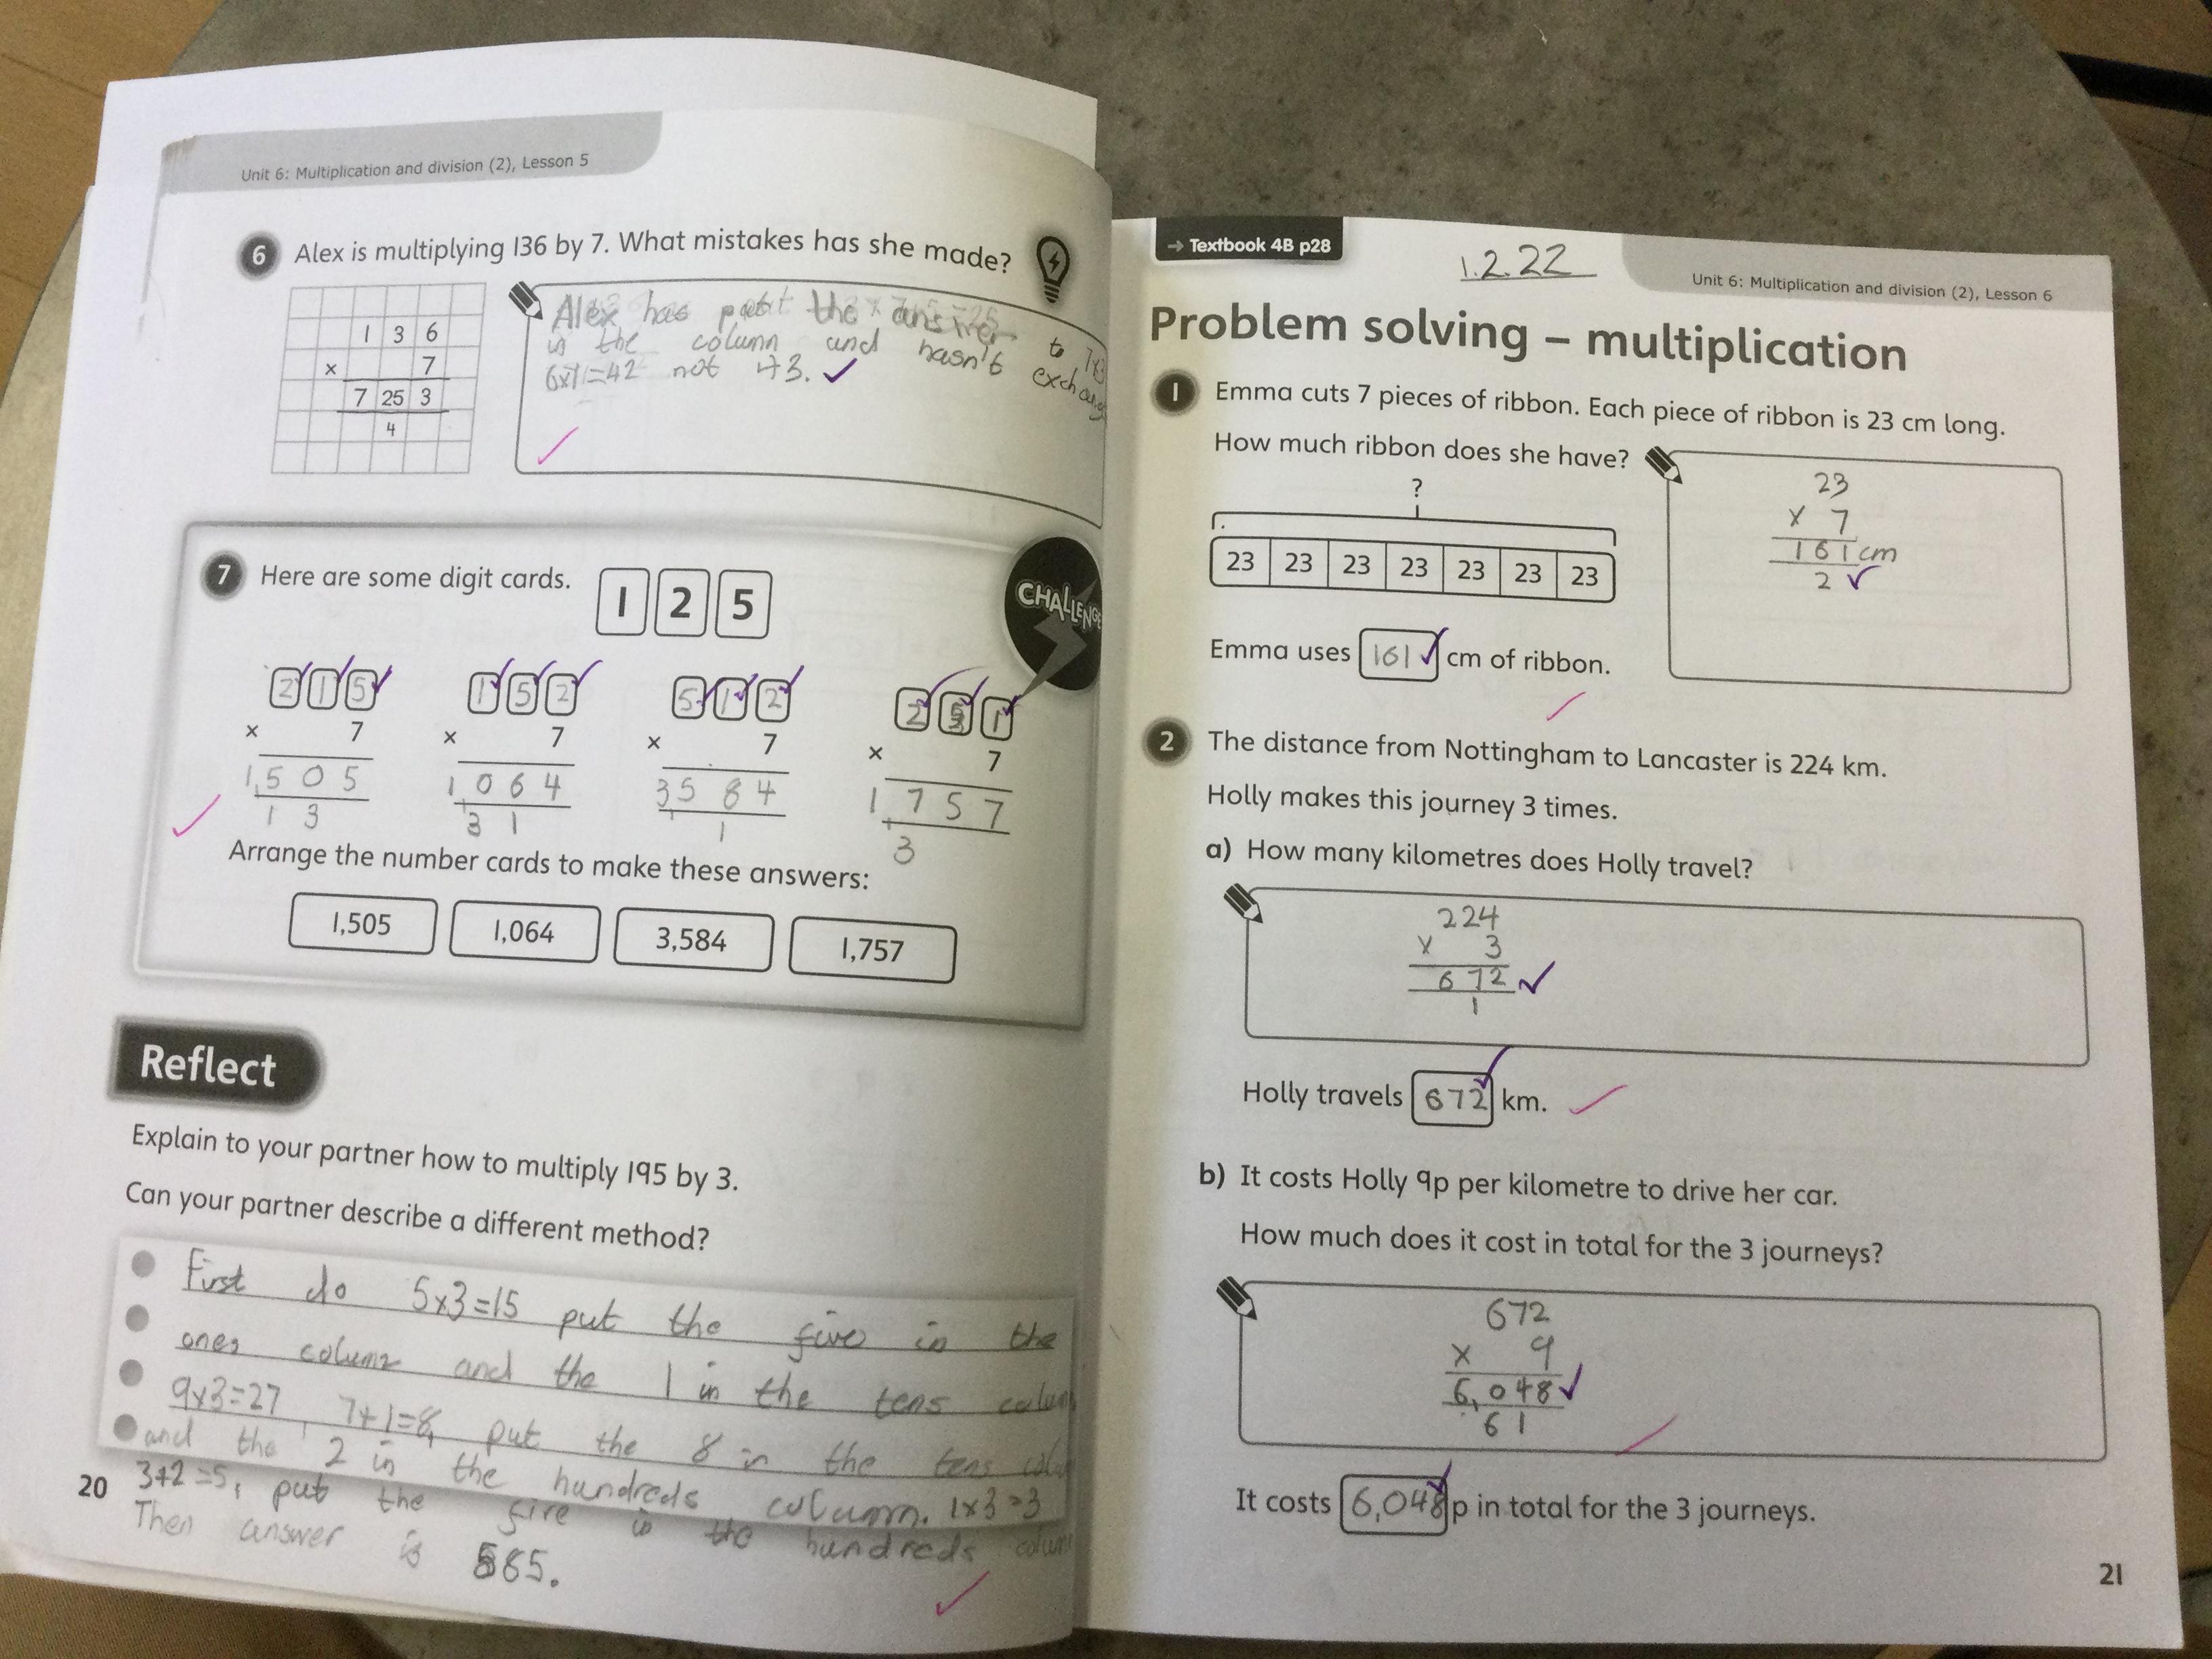 Unit 6: Multiplication and division (2), Lesson 5
6 Alex is multiplying 136 by 7. What mistakes has she made?
1 3 6
× 7
7 25 3
4
Alex has put the answer to 7x3
in the column and hasn't exchang
6x7=42 not 43.
7 Here are some digit cards. 1 2 5
CHALLENGE
2 1 5 1 5 2 5 1 2 2 5 1
× 7 × 7 × 7 × 7
1,505 1064 3584 1757
1 3 3 1 1 3
Arrange the number cards to make these answers:
1,505 1,064 3,584 1,757
Reflect
Explain to your partner how to multiply 195 by 3.
Can your partner describe a different method?
First do 5x3=15 put the five in the
ones column and the 1 in the tens colum
9x3=27, 7+1=8, put the 8 in the tens colu
and the 2 in the hundreds column. 1x3=3
3+2=5, put the five in the hundreds colum
Then answer is 585.
20
→ Textbook 4B p28
1.2.22
Unit 6: Multiplication and division (2), Lesson 6
Problem solving – multiplication
1 Emma cuts 7 pieces of ribbon. Each piece of ribbon is 23 cm long.
How much ribbon does she have?
?
23 23 23 23 23 23 23
23
x 7
161cm
2
Emma uses 161 cm of ribbon.
2 The distance from Nottingham to Lancaster is 224 km.
Holly makes this journey 3 times.
a) How many kilometres does Holly travel?
224
x 3
672
1
Holly travels 672 km.
b) It costs Holly 9p per kilometre to drive her car.
How much does it cost in total for the 3 journeys?
672
x 9
6,048
6 1
It costs 6,048 p in total for the 3 journeys.
21